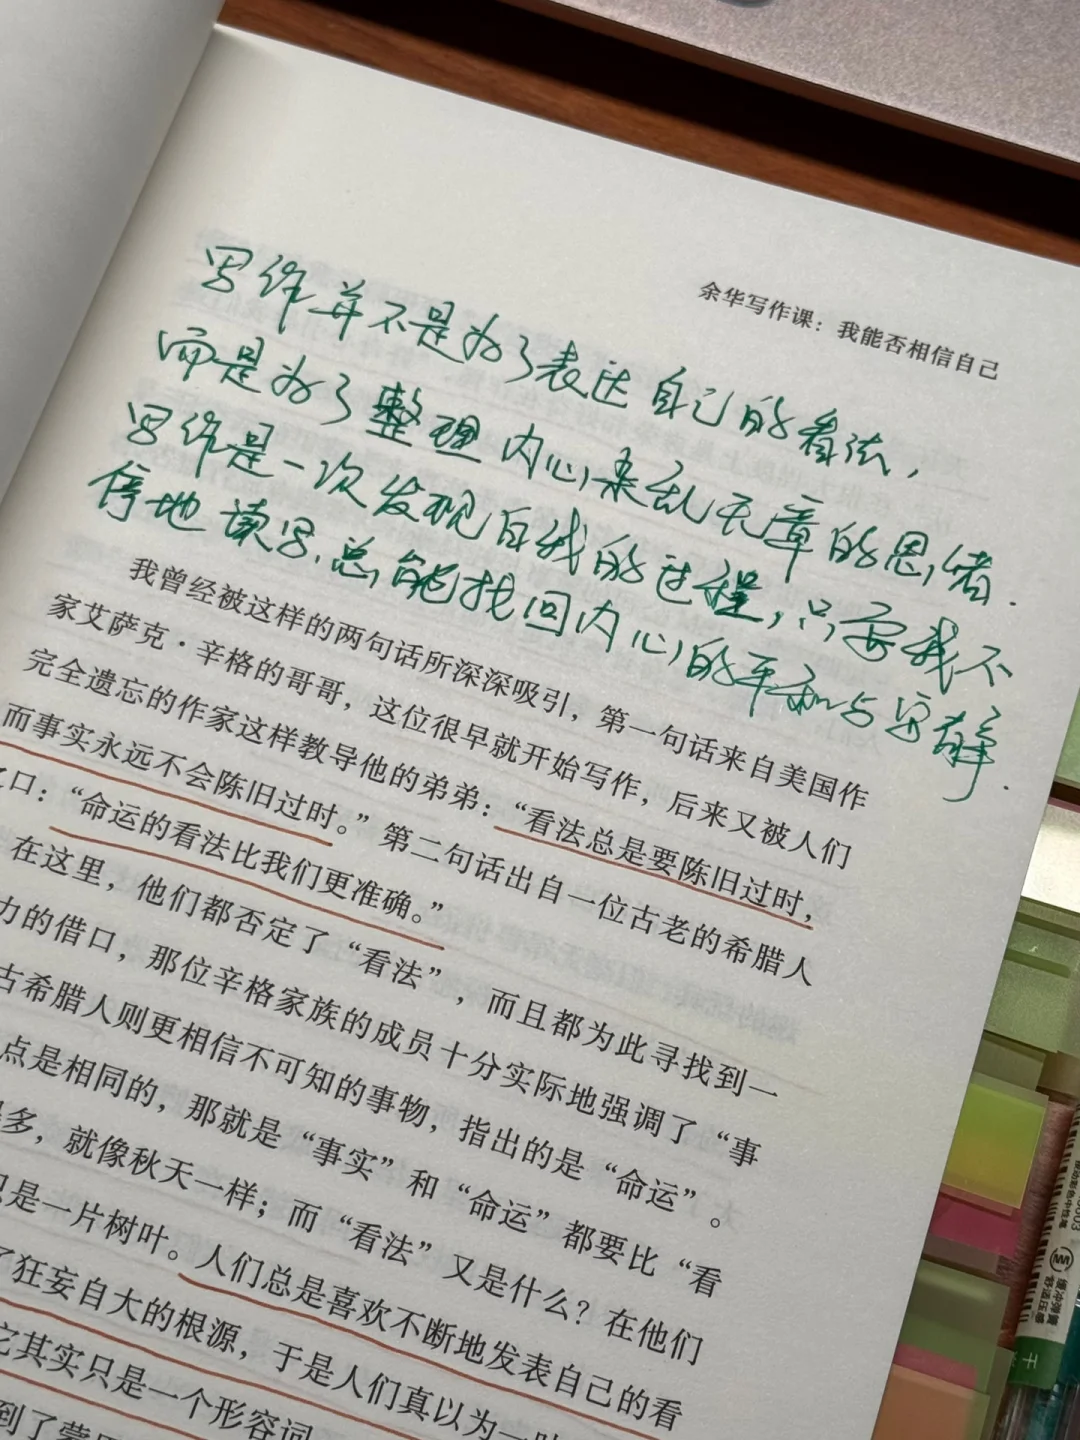 余华写作课：我能否相信自己
写作并不是为了表达自己的看法，
而是为了整理内心杂乱无章的思绪.
写作是一次发现自我的过程，只要我不
停地读写，总能找回内心的平和与安静.
我曾经被这样的两句话所深深吸引，第一句话来自美国作
家艾萨克·辛格的哥哥，这位很早就开始写作，后来又被人们
完全遗忘的作家这样教导他的弟弟：“看法总是要陈旧过时，
而事实永远不会陈旧过时。”第二句话出自一位古老的希腊人
之口：“命运的看法比我们更准确。”
在这里，他们都否定了“看法”，而且都为此寻找到一
力的借口，那位辛格家族的成员十分实际地强调了“事
古希腊人则更相信不可知的事物，指出的是“命运”。
点是相同的，那就是“事实”和“命运”都要比“看
多，就像秋天一样；而“看法”又是什么？在他们
只是一片树叶。人们总是喜欢不断地发表自己的看
了狂妄自大的根源，于是人们真以为一叶
之其实只是一个形容词
到了蒙